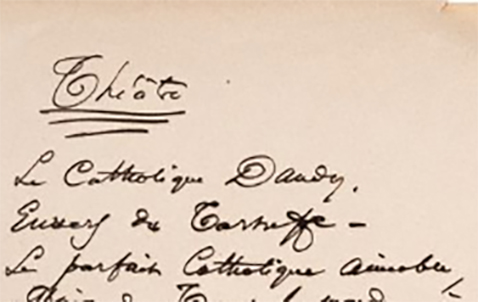 Théâtre
Le Catholique Dandy.
Envers du Tartuffe —
Le parfait Catholique aimable,